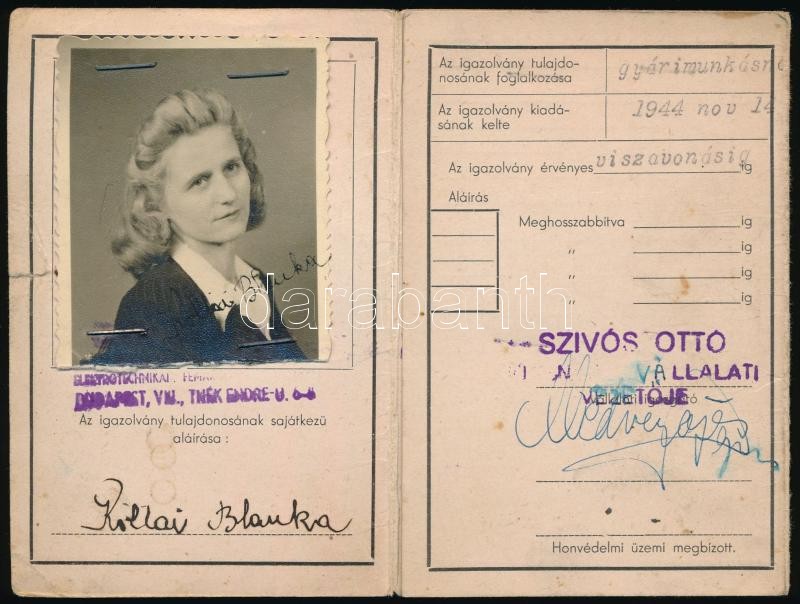 Blanka
ELEKTROTECHNIKAI
BUDAPEST, VIII., TNÉK ENDRE-U.
Az igazolvány tulajdonosának sajátkezű
aláírása :
Koltai Blanka
Az igazolvány tulajdo-
nosának foglalkozása
gyárimunkásnő
Az igazolvány kiadá-
sának kelte
1944 nov 14
Az igazolvány érvényes viszavonásig ig
Aláírás
Meghosszabbítva ig
„ ig
„ ig
„ ig
SZIVÓS OTTÓ
VÁLLALATI
VEZETŐJE
Honvédelmi üzemi megbízott.
darabanth